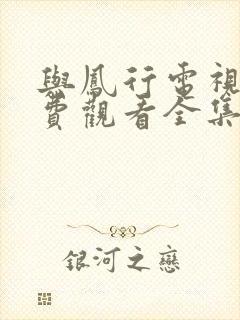 與鳳行電視
費觀看全集
銀河之戀